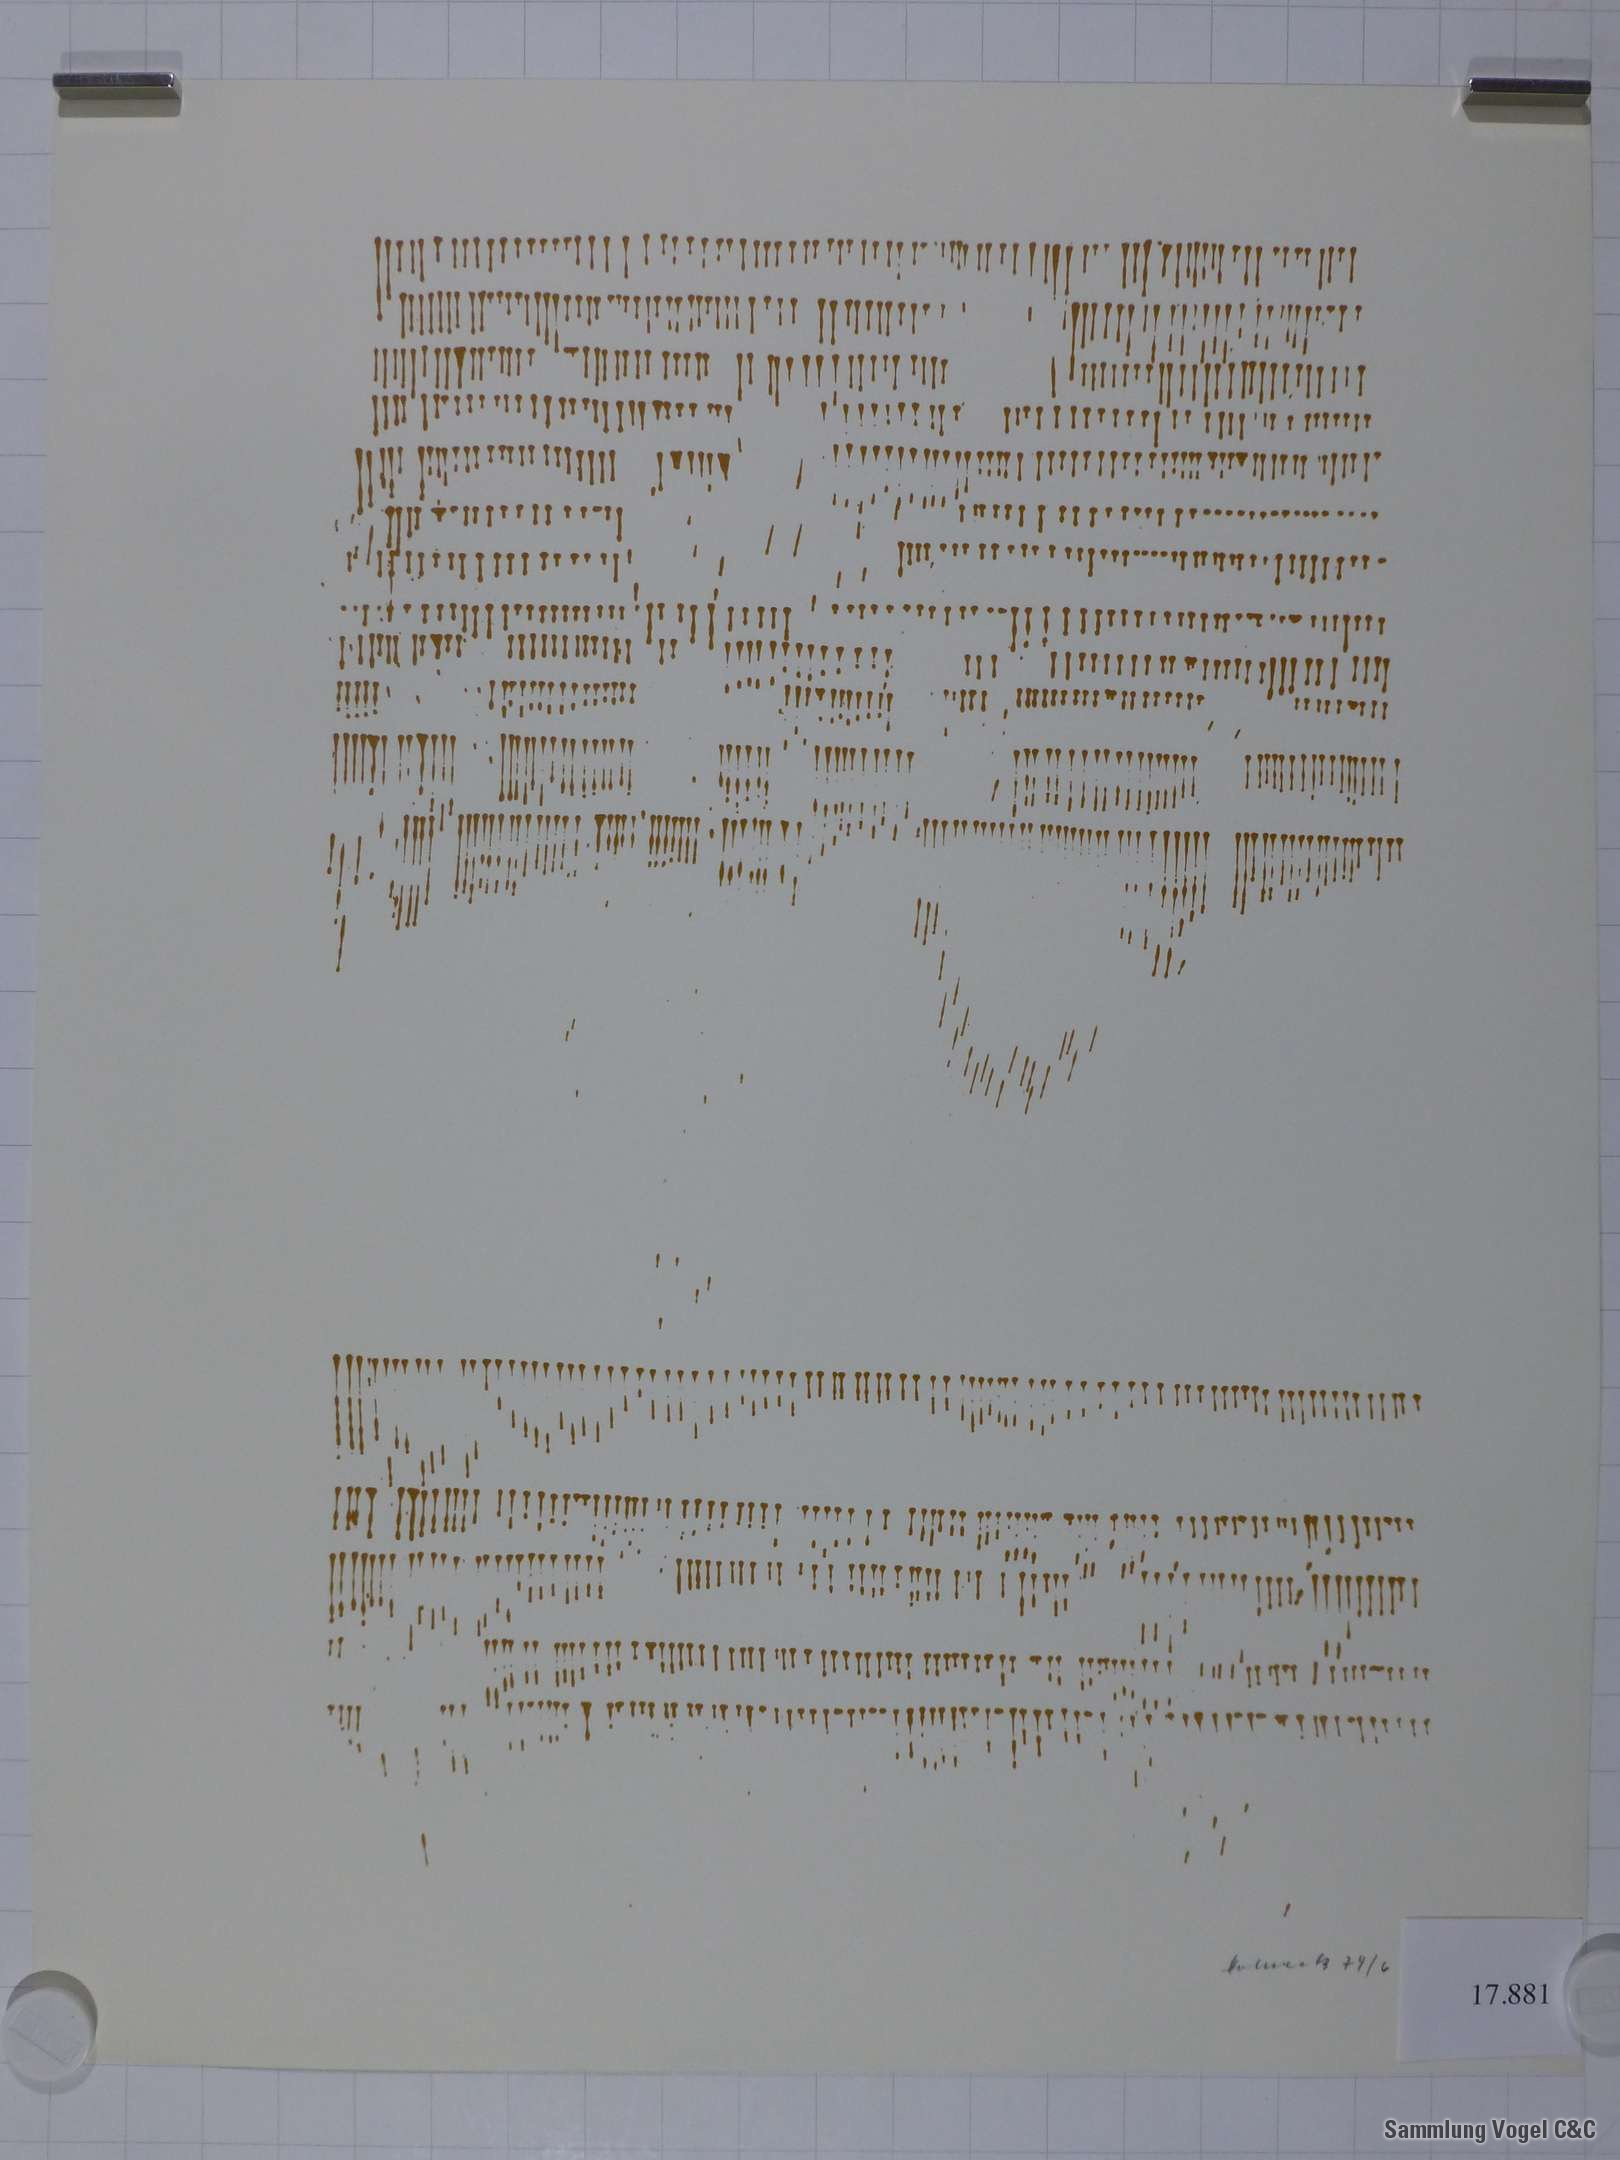 74/6
17.881
Sammlung Vogel C&C